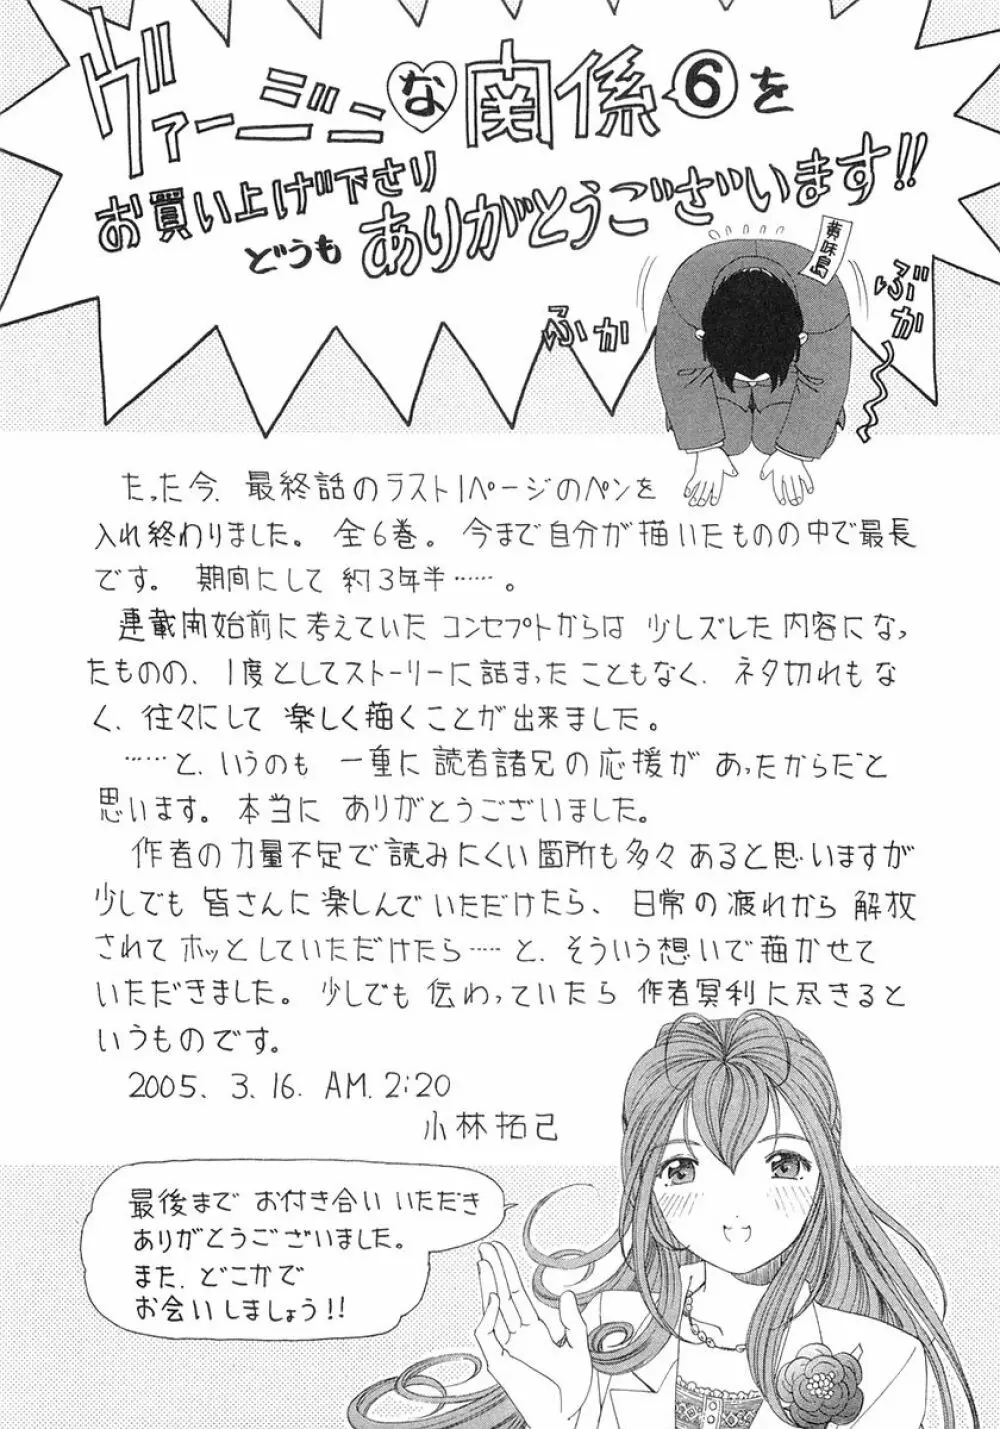 ヴァージニな関係⑥を
お買い上げ下さり
どうもありがとうございます!!
黄味島
ぶか
ぶか
たった今、最終話のラスト1ページのペンを
入れ終わりました。 全6巻。 今まで自分が描いたものの中で最長
です。 期間にして約3年半……。
連載開始前に考えていたコンセプトからは少しズレした内容になっ
たものの、1度としてストーリーに詰まったこともなく、ネタ切れもな
く、往々にして楽しく描くことが出来ました。
……と、いうのも 一重に読者諸兄の応援が あったからだと
思います。本当に ありがとうございました。
作者の力量不足で読みにくい箇所も多々あると思いますが
少しでも 皆さんに楽しんでいただけたら、日常の疲れから解放
されてホッとしていただけたら……と、そういう想いで描かせて
いただきました。少しでも伝わっていたら 作者冥利に尽きると
いうものです。
2005. 3. 16. AM. 2:20
小林拓己
最後まで お付き合い いただき
ありがとうございました。
また、どこかで
お会いしましょう!!